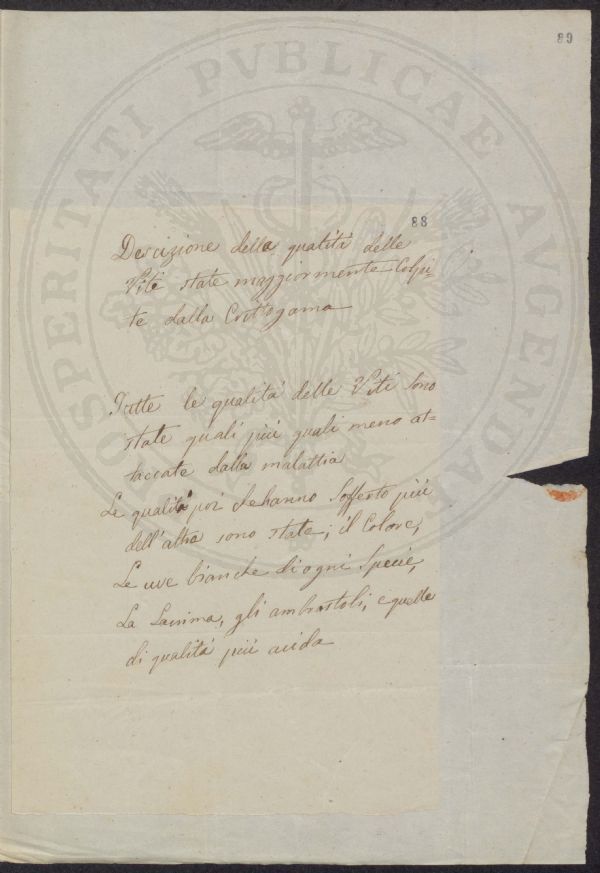 89
88
Descizione della qualità delle
Viti state maggiormente Colpi-
te dalla Crittogama
Tutte le qualità delle Viti Sono
state quali più quali meno at=
taccate dalla malattia
Le qualità poi che hanno Sofferto più
dell'altre sono state; il Colore,
Le uve bianche di ogni Specie,
La Lacrima, gli ambrostoli, e quelle
di qualità più acida
PROSPERITATI PVBLICAE AVGENDAE